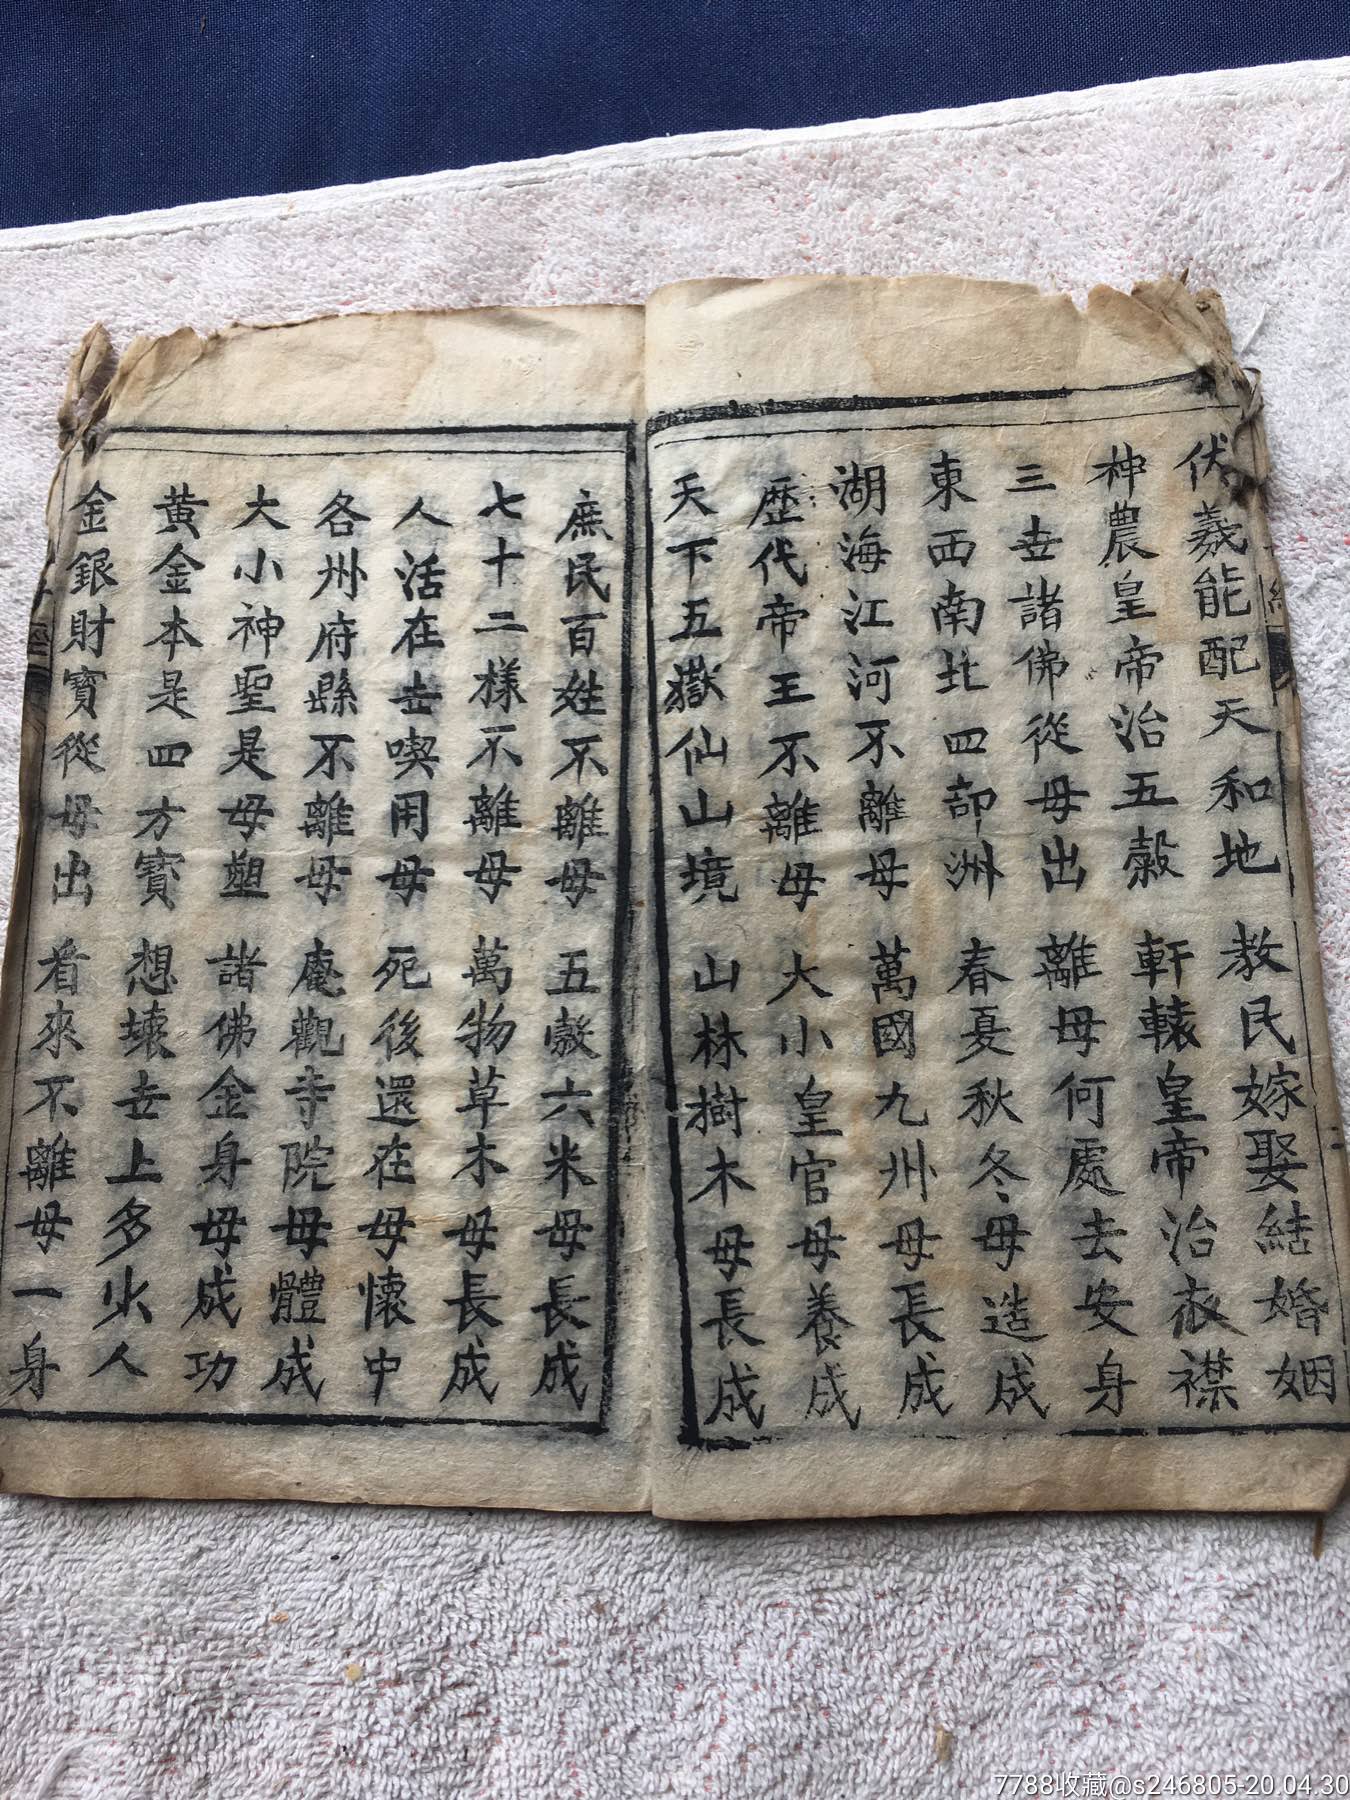 伏羲能配天和地 教民嫁娶結婚姻
神農皇帝治五穀 軒轅皇帝治衣襟
三世諸佛從母出 離母何處去安身
東西南北四部洲 春夏秋冬母造成
湖海江河不離母 萬國九州母長成
歷代帝王不離母 大小皇官母養成
天下五嶽仙山境 山林樹木母長成
庶民百姓不離母 五穀六米母長成
七十二樣不離母 萬物草木母長成
人活在世喫用母 死後還在母懷中
各州府縣不離母 庵觀寺院母體成
大小神聖是母塑 諸佛金身母成功
黃金本是四方寶 想壞世上多少人
金銀財寶從母出 看來不離母一身
7788收藏@s246805-20.04.30